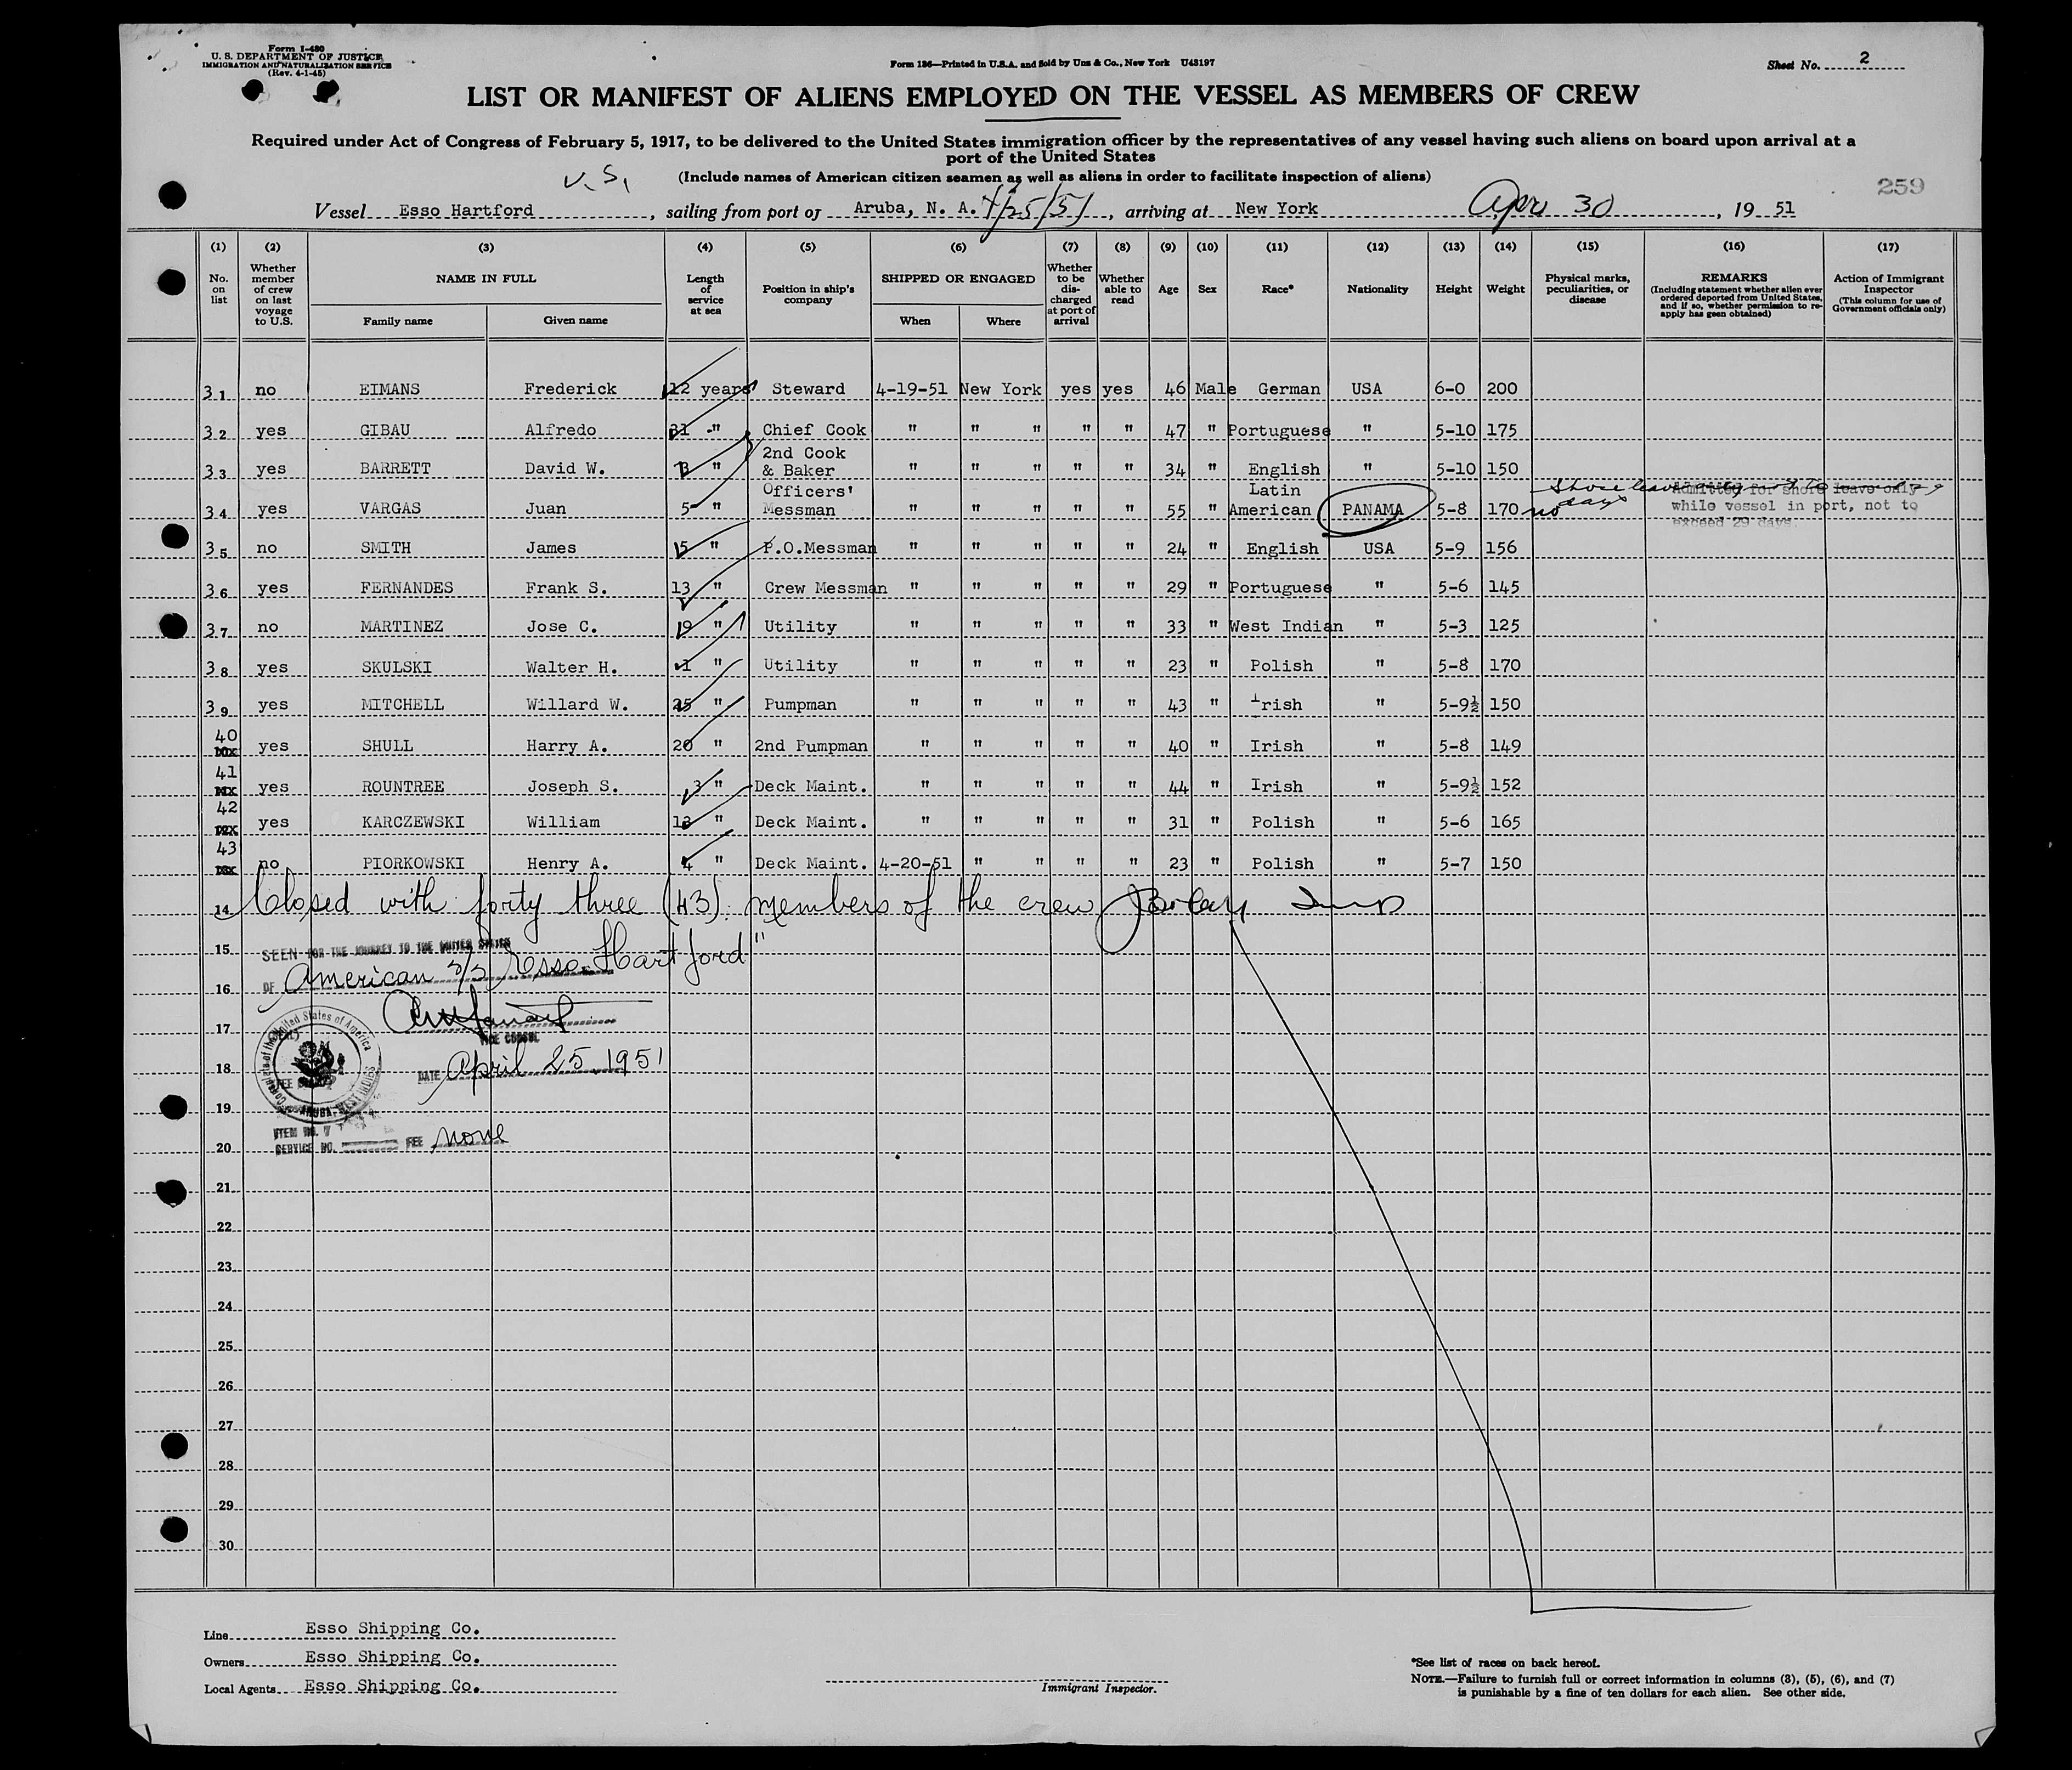 Form I-480
U. S. DEPARTMENT OF JUSTICE
IMMIGRATION AND NATURALIZATION SERVICE
(Rev. 4-1-45)
Form 186—Printed in U.S.A. and Sold by Unz & Co., New York U48197
Sheet No. 2
LIST OR MANIFEST OF ALIENS EMPLOYED ON THE VESSEL AS MEMBERS OF CREW
Required under Act of Congress of February 5, 1917, to be delivered to the United States immigration officer by the representatives of any vessel having such aliens on board upon arrival at a
port of the United States
(Include names of American citizen seamen as well as aliens in order to facilitate inspection of aliens)
U. S.
259
Vessel Esso Hartford, sailing from port of Aruba, N. A. 4/25/51, arriving at New York Apr 30, 19 51
(1) (2) (3) (4) (5) (6) (7) (8) (9) (10) (11) (12) (13) (14) (15) (16) (17)
No. on list
Whether member of crew on last voyage to U.S.
NAME IN FULL
Family name Given name
Length of service at sea
Position in ship's company
SHIPPED OR ENGAGED
When Where
Whether to be discharged at port of arrival
Whether able to read
Age
Sex
Race*
Nationality
Height
Weight
Physical marks, peculiarities, or disease
REMARKS
(Including statement whether alien ever ordered deported from United States, and if so, whether permission to re-apply has geen obtained)
Action of Immigrant Inspector
(This column for use of Government officials only)
31 no EIMANS Frederick 12 years Steward 4-19-51 New York yes yes 46 Male German USA 6-0 200
32 yes GIBAU Alfredo 31 " Chief Cook " " " " " 47 " Portuguese " 5-10 175
33 yes BARRETT David W. " 2nd Cook & Baker " " " " " 34 " English " 5-10 150
34 yes VARGAS Juan 5 " Officers' Messman " " " " " 55 " Latin American PANAMA 5-8 170 no Shore leave days
Admitted for shore leave only
while vessel in port, not to
exceed 29 days.
35 no SMITH James 5 " P.O.Messman " " " " " 24 " English USA 5-9 156
36 yes FERNANDES Frank S. 13 " Crew Messman " " " " " 29 " Portuguese " 5-6 145
37 no MARTINEZ Jose C. 19 " Utility " " " " " 33 " West Indian " 5-3 125
38 yes SKULSKI Walter H. 1 " Utility " " " " " 23 " Polish " 5-8 170
39 yes MITCHELL Willard W. 25 " Pumpman " " " " " 43 " Irish " 5-9½ 150
40 yes SHULL Harry A. 20 " 2nd Pumpman " " " " " 40 " Irish " 5-8 149
41 yes ROUNTREE Joseph S. 3 " Deck Maint. " " " " " 44 " Irish " 5-9½ 152
42 yes KARCZEWSKI William " Deck Maint. " " " " " 31 " Polish " 5-6 165
43 no PIORKOWSKI Henry A. 4 " Deck Maint. 4-20-51 " " " " 23 " Polish " 5-7 150
14 Closed with forty three (43) members of the crew
15 SEEN FOR THE JOURNEY TO THE UNITED STATES
16 OF American s/s Esso Hartford"
17
VICE CONSUL
18 DATE April 25, 1951
Consulate of the United States of America
ARUBA, WEST INDIES
19
ITEM NO. 7
20 SERVICE NO. FEE none
21
22
23
24
25
26
27
28
29
30
Line Esso Shipping Co.
Owners Esso Shipping Co.
Local Agents Esso Shipping Co.
Immigrant Inspector.
*See list of races on back hereof.
NOTE.—Failure to furnish full or correct information in columns (3), (5), (6), and (7)
is punishable by a fine of ten dollars for each alien. See other side.